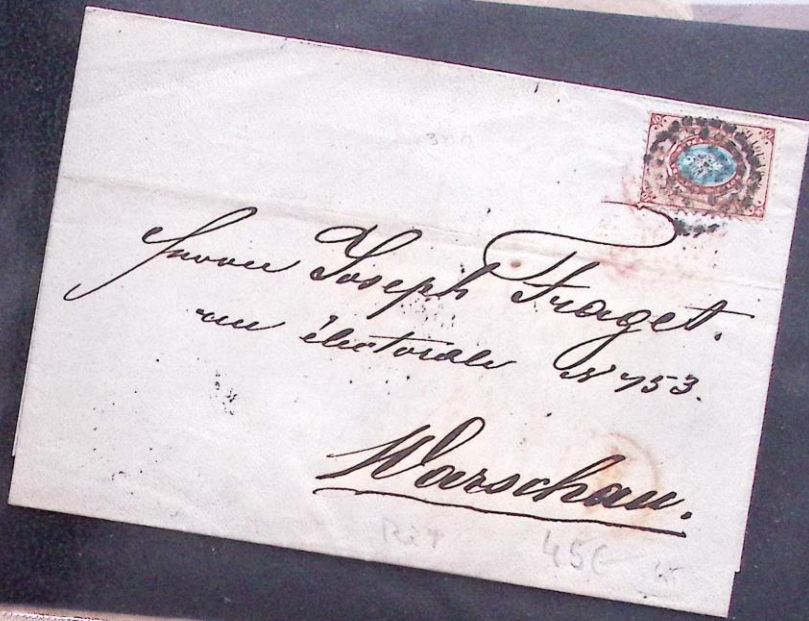 300
Herrn Joseph Fraget.
rue électorale N 753.
Warschau.
45€